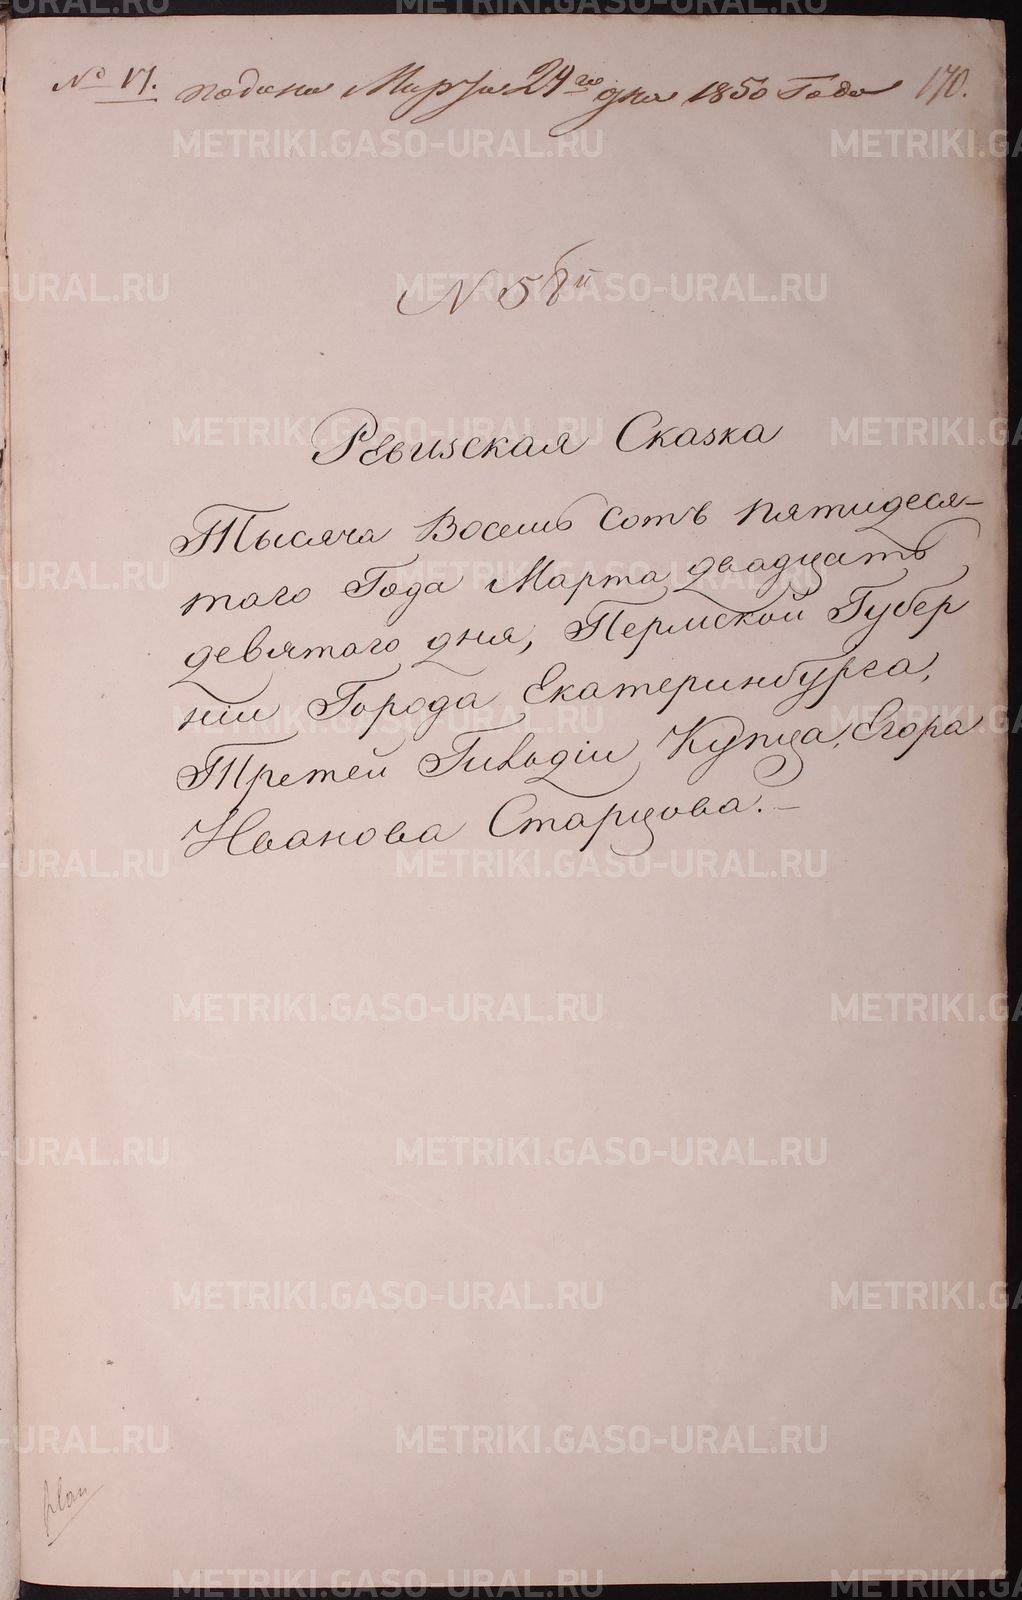 № 17. подана Марта 24го дня 1850 Года 170.
N 58й
Ревизская Сказка
Тысяча Восемь Сотъ пятидеся-
таго Года Марта двадцать
девятаго дня, Пермской Губер
ніи Города Екатеринбурга,
Третей Гильдіи Купца, Егора
Иванова Старцова.-
METRIKI.GASO-URAL.RU